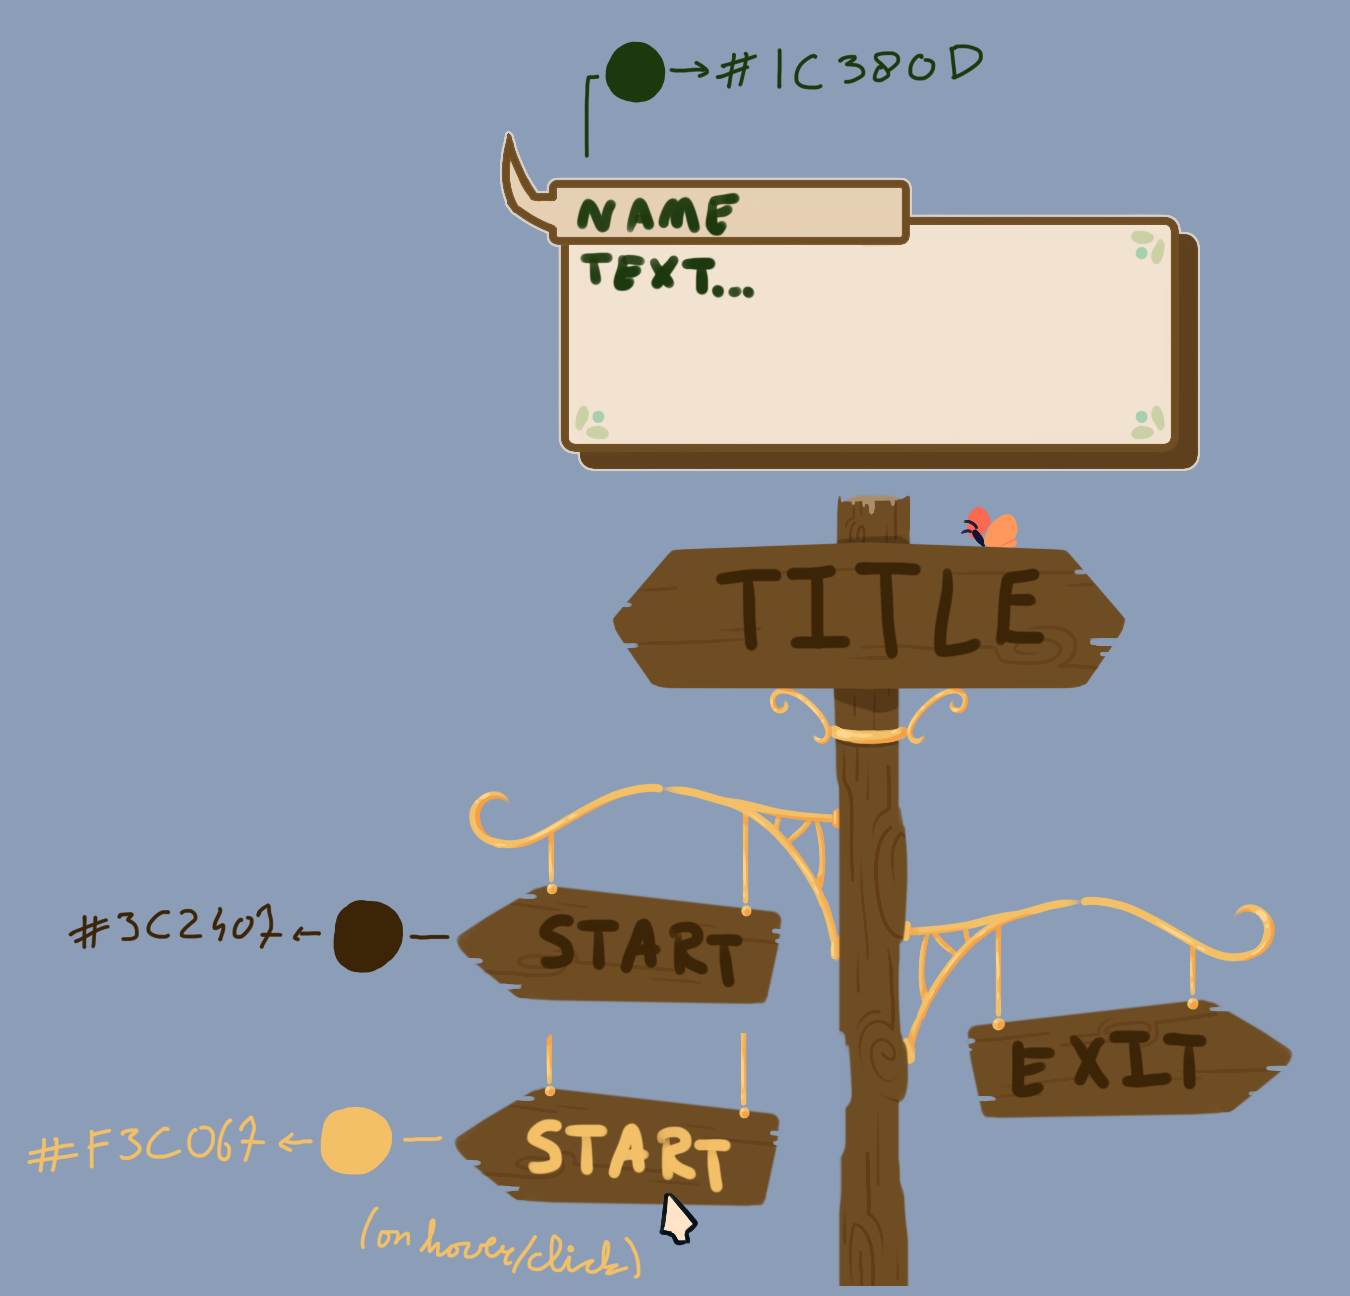 #1C380D
NAME
TEXT...
TITLE
#3C2407
START
EXIT
#F3C067
START
(on hover/click)